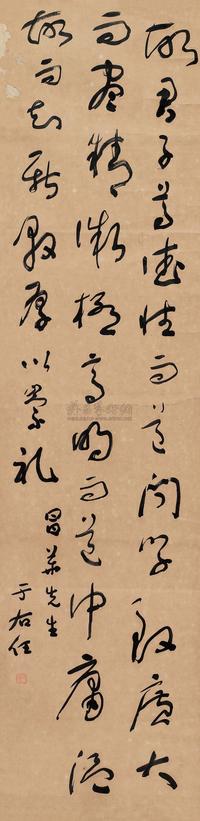 故君子尊德性而道問學致廣大
而盡精微極高明而道中庸溫
故而知新敦厚以崇礼
昌華先生
于右任